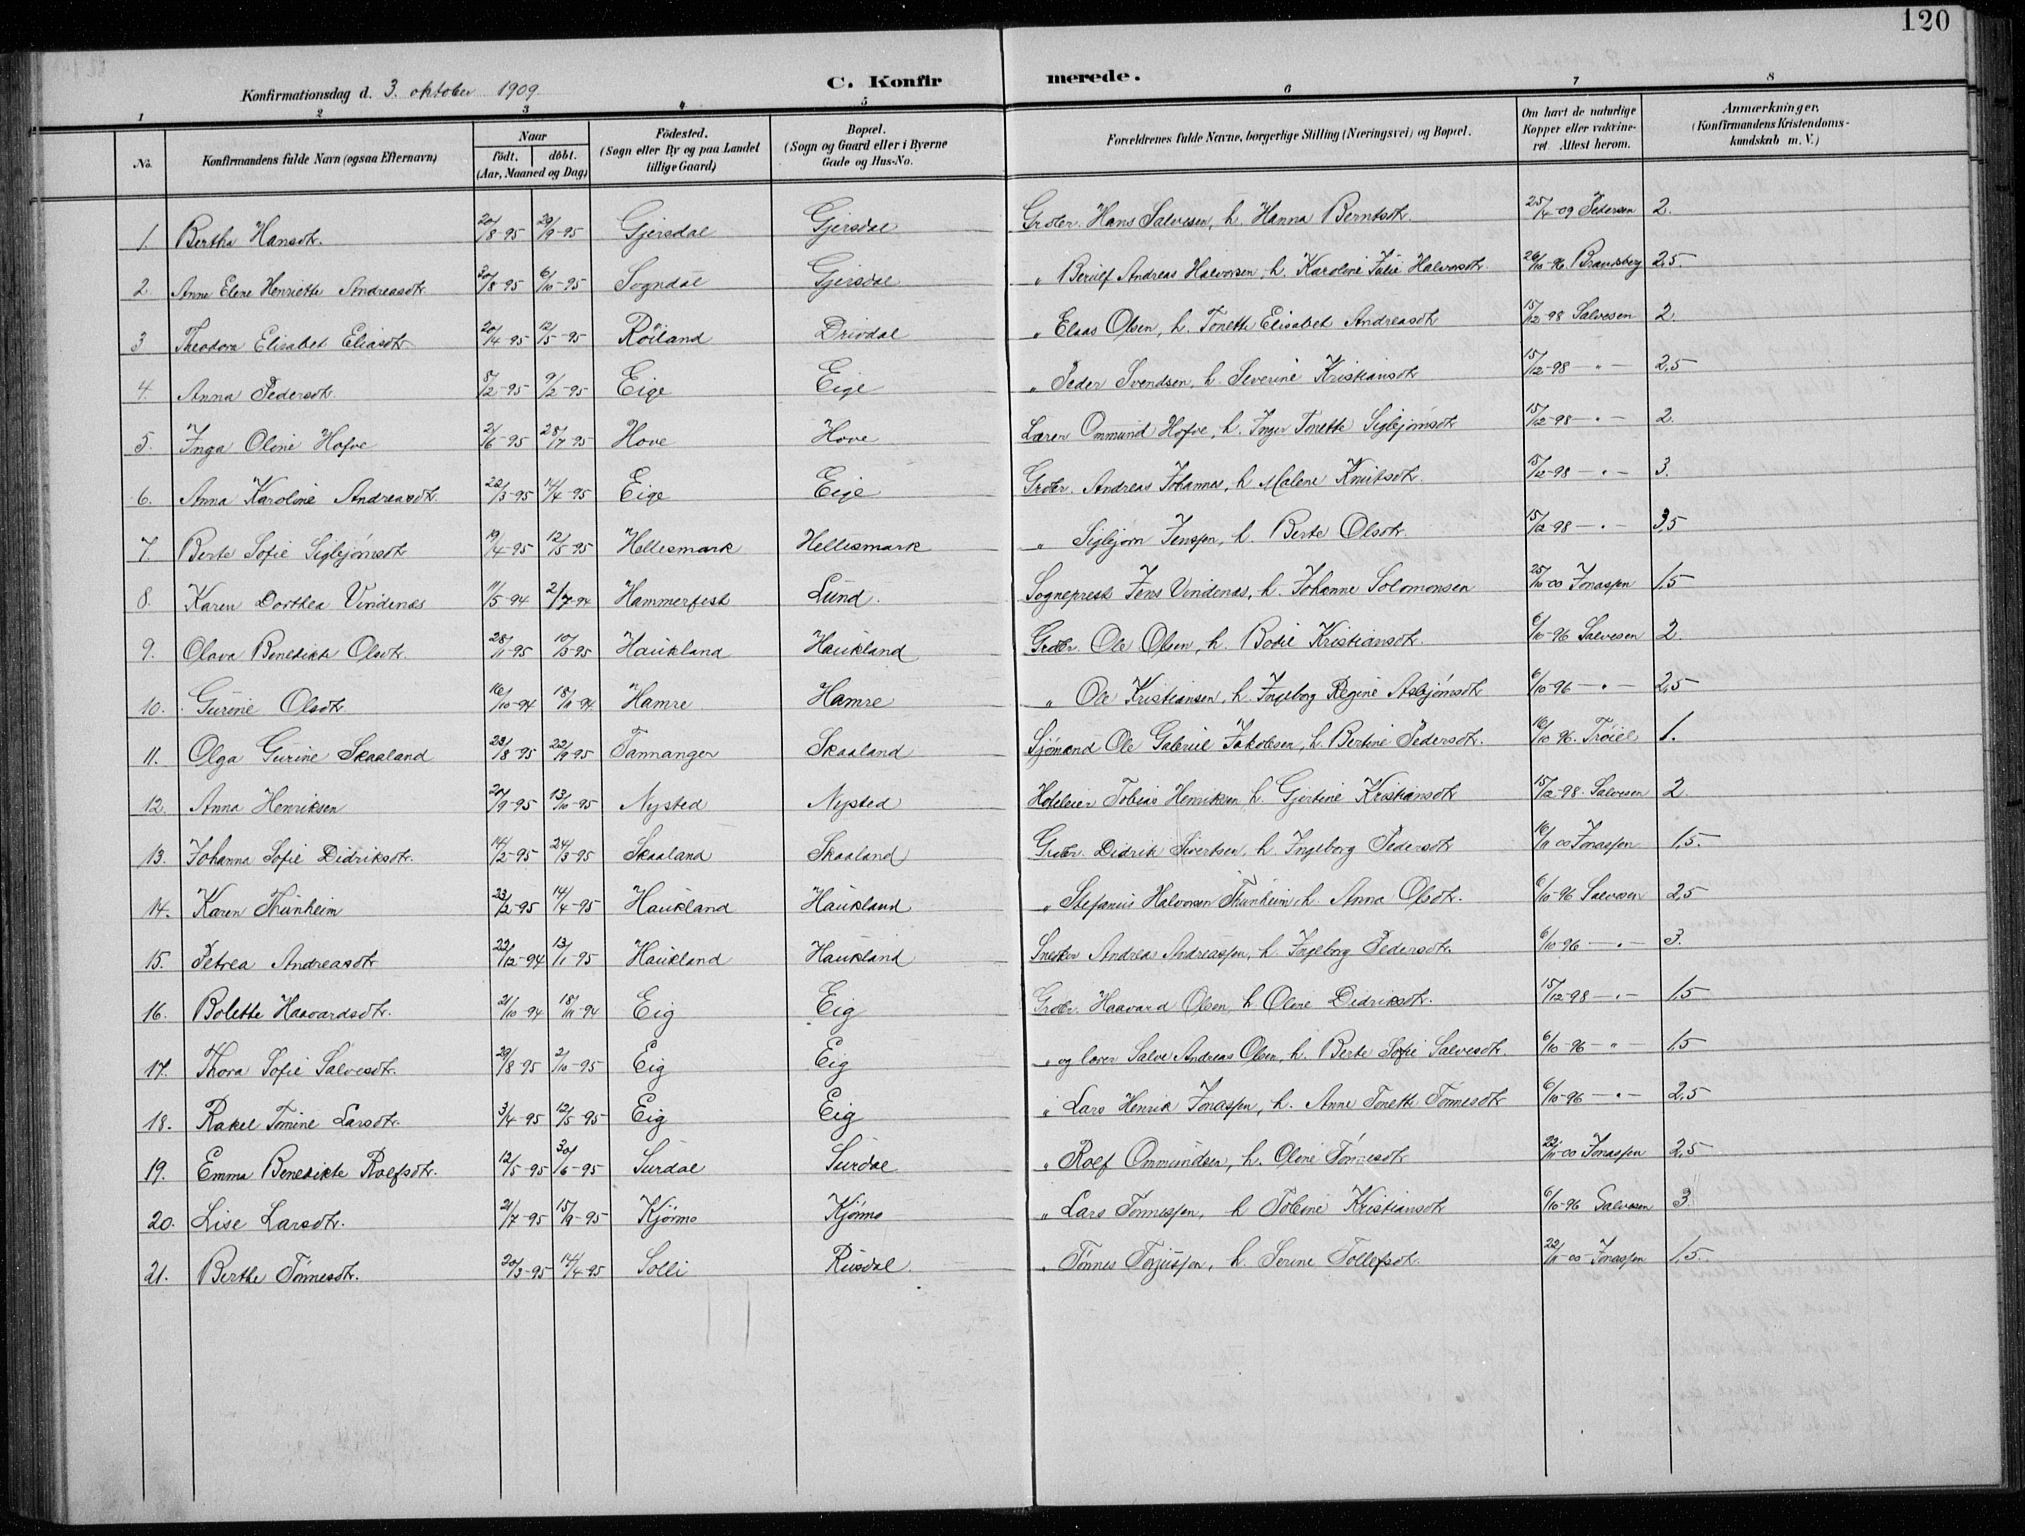 120
Konfirmationsdag d. 3. oktober 1909
C. Konfirmerede.
1 2 3 4 5 6 7 8
No. Konfirmandens fulde Navn (ogsaa Efternavn) Naar født. døbt. (Aar, Maaned og Dag) Fødested. (Sogn eller By og paa Landet tillige Gaard) Bopæl. (Sogn og Gaard eller i Byerne Gade og Hus-No. Forældrenes fulde Navne, borgerlige Stilling (Næringsvei) og Bopæl. Om havt de naturlige Kopper eller vakcineret. Attest herom. Anmærkninger. (Konfirmandens Kristendomskundskab m. V.)
1. Bertha Hansdtr. 20/8-95 29/9-95 Gjersdal Gjersdal Grdbr. Hans Salvesen, h. Hanna Berntsdtr. 25/4-09 Pedersen 2.
2. Anne Elene Henriette Andreasdtr. 20/8-95 6/10-95 Sogndal Gjersdal " Berulf Andreas Halvorsen, h. Karoline Julie Halvorsdtr. 26/10-96 Brandsberg 2,5.
3 Theodora Elisabet Eliasdtr. 20/4-95 12/5-95 Röiland Drivdal " Elias Olsen, h. Tonette Elisabet Andreasdtr 15/12-98 Salvesen 2.
4. Anna Pedersdtr. 8/12-95 9/2-95 Eige Eige " Peder Svendsen, h. Severine Kristiansdtr 15/12-98 - " - 2,5
5. Inga Oline Hofve 2/6-95 28/7-95 Hove Hove Lærer Ommund Hofve, h. Inger Tonette Sigbjørnsdtr 15/12-98 - " - 2.
6. Anna Karoline Andreasdtr. 22/3-95 14/4-95 Eige Eige Grdbr. Andreas Johannes, h. Malene Knutsdtr. 15/12-98 - " - 3.
7 Berte Sofie Sigbjørnsdtr 19/4-95 12/5-95 Hellesmark Hellesmark " Sigbjørn Jenssen, h. Berte Olsdtr. 15/12-98 - " - 3,5
8. Karen Dorthea Vindenes 11/5-94 2/7-94 Hammerfest Lund. Sogneprest Jens Vindenes, h. Johanne Solomonsen 25/10-00 Jonassen 1,5
9. Olava Benedikte Olsdtr. 28/1-95 10/3-95 Haukland Haukland Grdbr. Ole Olsen, h. Bodil Kristiansdtr. 6/10-96 Salvesen 2.
10. Gurine Olsdtr 16/10-94 18/11-94. Hamre Hamre " Ole Kristiansen, h. Ingeborg Regine Asbjørnsdtr 6/10-96 - " - 2,5
11. Olga Gurine Skaaland 23/8-95 22/9-95 Tananger Skaaland Sjømand Ole Gabriel Jakobsen, h. Bertine Pedersdtr. 16/10-96. Trøiel 1.
12. Anna Henriksen 20/9-95 13/10-95 Nysted Nysted Hoteleier Tobias Henriksen h. Gjertine Kristiansdtr 15/12-98. Salvesen 2.
13. Johanna Sofie Didriksdtr. 14/2-95 24/3-95 Skaaland Skaaland Grdbr. Didrik Sivertsen, h. Ingeborg Pedersdtr 16/11 00 Jonassen 1,5.
14. Karen Thunheim 23/2-95 14/4-95 Haukland Haukland " Stefanus Halvorsen Thunheim, h. Anna Olsdtr. 6/10-96 Salvesen 2,5
15. Petrea Andreasdtr 22/12-94 13/1-95 Haukland Haukland Snekker Andreas Andreassen, h. Ingeborg Pedersdtr. 6/10-96 - " - 3.
16. Bolette Haavardsdtr. 21/10-94 18/11-94 Eig Eig Grdbr. Haavard Olsen, h. Oline Didriksdtr. 15/12-98 - " - 1,5
17. Thora Sofie Salvesdtr. 29/8-95 2/10-95 Eig Eig " og lærer Salve Andreas Olsen, h. Berte Sofie Salvesdtr. 6/10-96 - " - 1,5
18. Rakel Tomine Larsdtr. 3/4-95 12/5-95 Eig Eig " Lars Henrik Jonassen, h. Anne Tonette Tønnesdtr 6/10-96 - " - 2,5
19. Emma Benedikte Rolfsdtr. 12/5-95 30/6-95 Surdal Surdal " Rolf Ommundsen, h. Oline Tønnesdtr 22/11-00 Jonassen 2,5
20. Lise Larsdtr. 21/7-95 15/9-95 Kjörmo Kjörmo " Lars Tønnessen, h Tobine Kristiansdtr 6/10-96 Salvesen 3.
21. Berthe Tönnesdtr. 20/3-95 14/4-95 Solli Rusdal. " Tønnes Torjussen, h. Serine Tollefsdtr. 22/11-00 Jonassen 1,5.